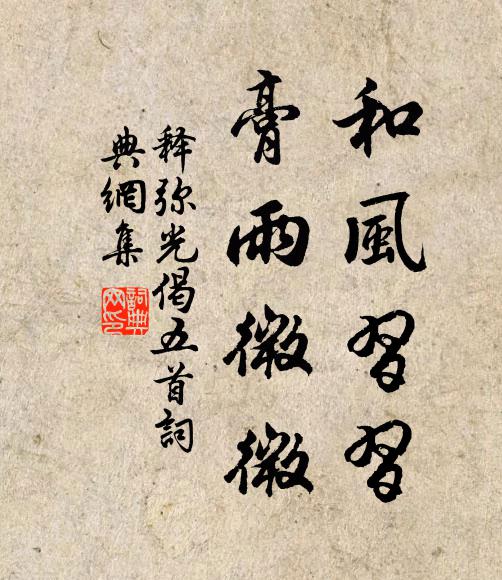 和風習習
膏雨微微
释弥光偈五首詞
典網集
詞典
网印